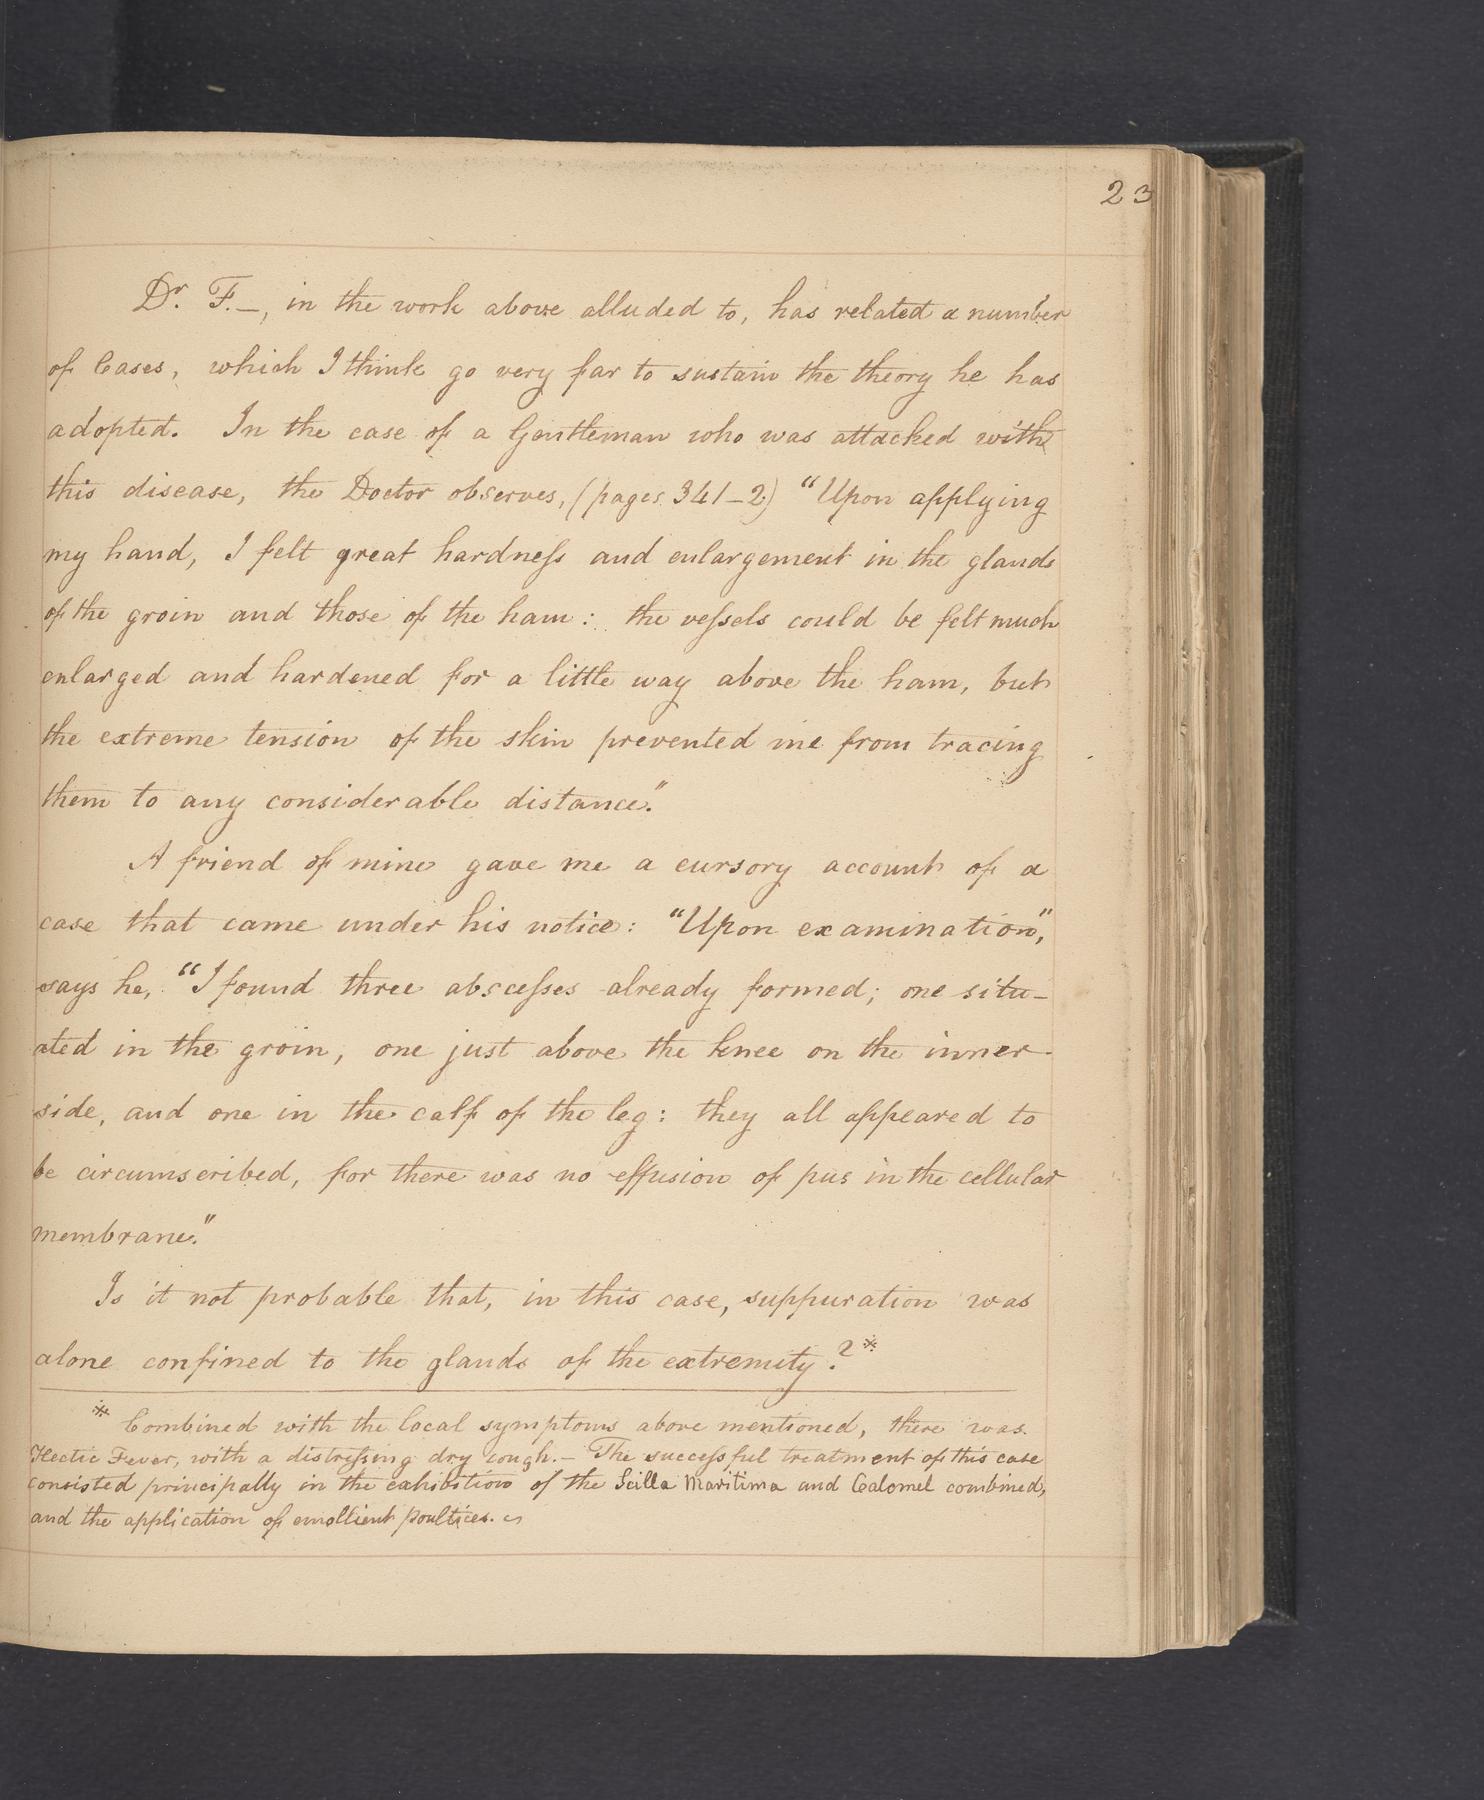 23
Dr. F.—, in the work above alluded to, has related a number
of Cases, which I think go very far to sustain the theory he has
adopted. In the case of a Gentleman who was attacked with
this disease, the Doctor observes, (pages 341–2) “Upon applying
my hand, I felt great hardneſs and enlargement in the glands
of the groin and those of the ham: the veſsels could be felt much
enlarged and hardened for a little way above the ham, but
the extreme tension of the skin prevented me from tracing
them to any considerable distance."
A friend of mine gave me a cursory account of a
case that came under his notice: “Upon examination",
says he, “I found three absceſses already formed; one situ-
ated in the groin, one just above the knee on the inner-
side, and one in the calf of the leg: they all appeared to
be circumscribed, for there was no effusion of pus in the cellular
membrane."
Is it not probable that, in this case, suppuration was
alone confined to the glands of the extremity?*
* Combined with the local symptoms above mentioned, there was
Hectic Fever, with a distreſsing dry cough.— The succeſsful treatment of this case
consisted principally in the exhibition of the Scilla Maritima and Calomel combined,
and the application of emollient poultices.